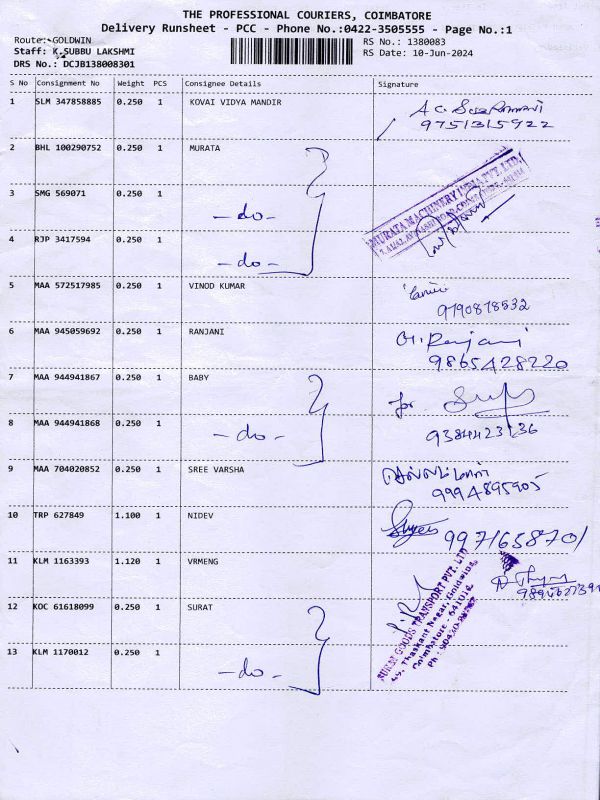 THE PROFESSIONAL COURIERS, COIMBATORE
Delivery Runsheet - PCC - Phone No.:0422-3505555 - Page No.:1
Route: GOLDWIN
RS No.: 1380083
Staff: K.SUBBU LAKSHMI
RS Date: 10-Jun-2024
DRS No.: DCJB138008301
S No Consignment No Weight PCS Consignee Details Signature
1 SLM 347858885 0.250 1 KOVAI VIDYA MANDIR
9751315922
2 BHL 100290752 0.250 1 MURATA
MURATA MACHINERY INDIA PVT. LTD.
3 SMG 569071 0.250 1 -do-
4 RJP 3417594 0.250 1 -do-
5 MAA 572517985 0.250 1 VINOD KUMAR
9190878532
6 MAA 945059692 0.250 1 RANJANI
9865428220
7 MAA 944941867 0.250 1 BABY for
8 MAA 944941868 0.250 1 -do-
9384423136
9 MAA 704020852 0.250 1 SREE VARSHA
9994895905
10 TRP 627849 1.100 1 NIDEV
9971658701
11 KLM 1163393 1.120 1 VRMENG
12 KOC 61618099 0.250 1 SURAT
13 KLM 1170012 0.250 1 -do-
GOODS TRANSPORT PVT. LTD
Coimbatore - 641014